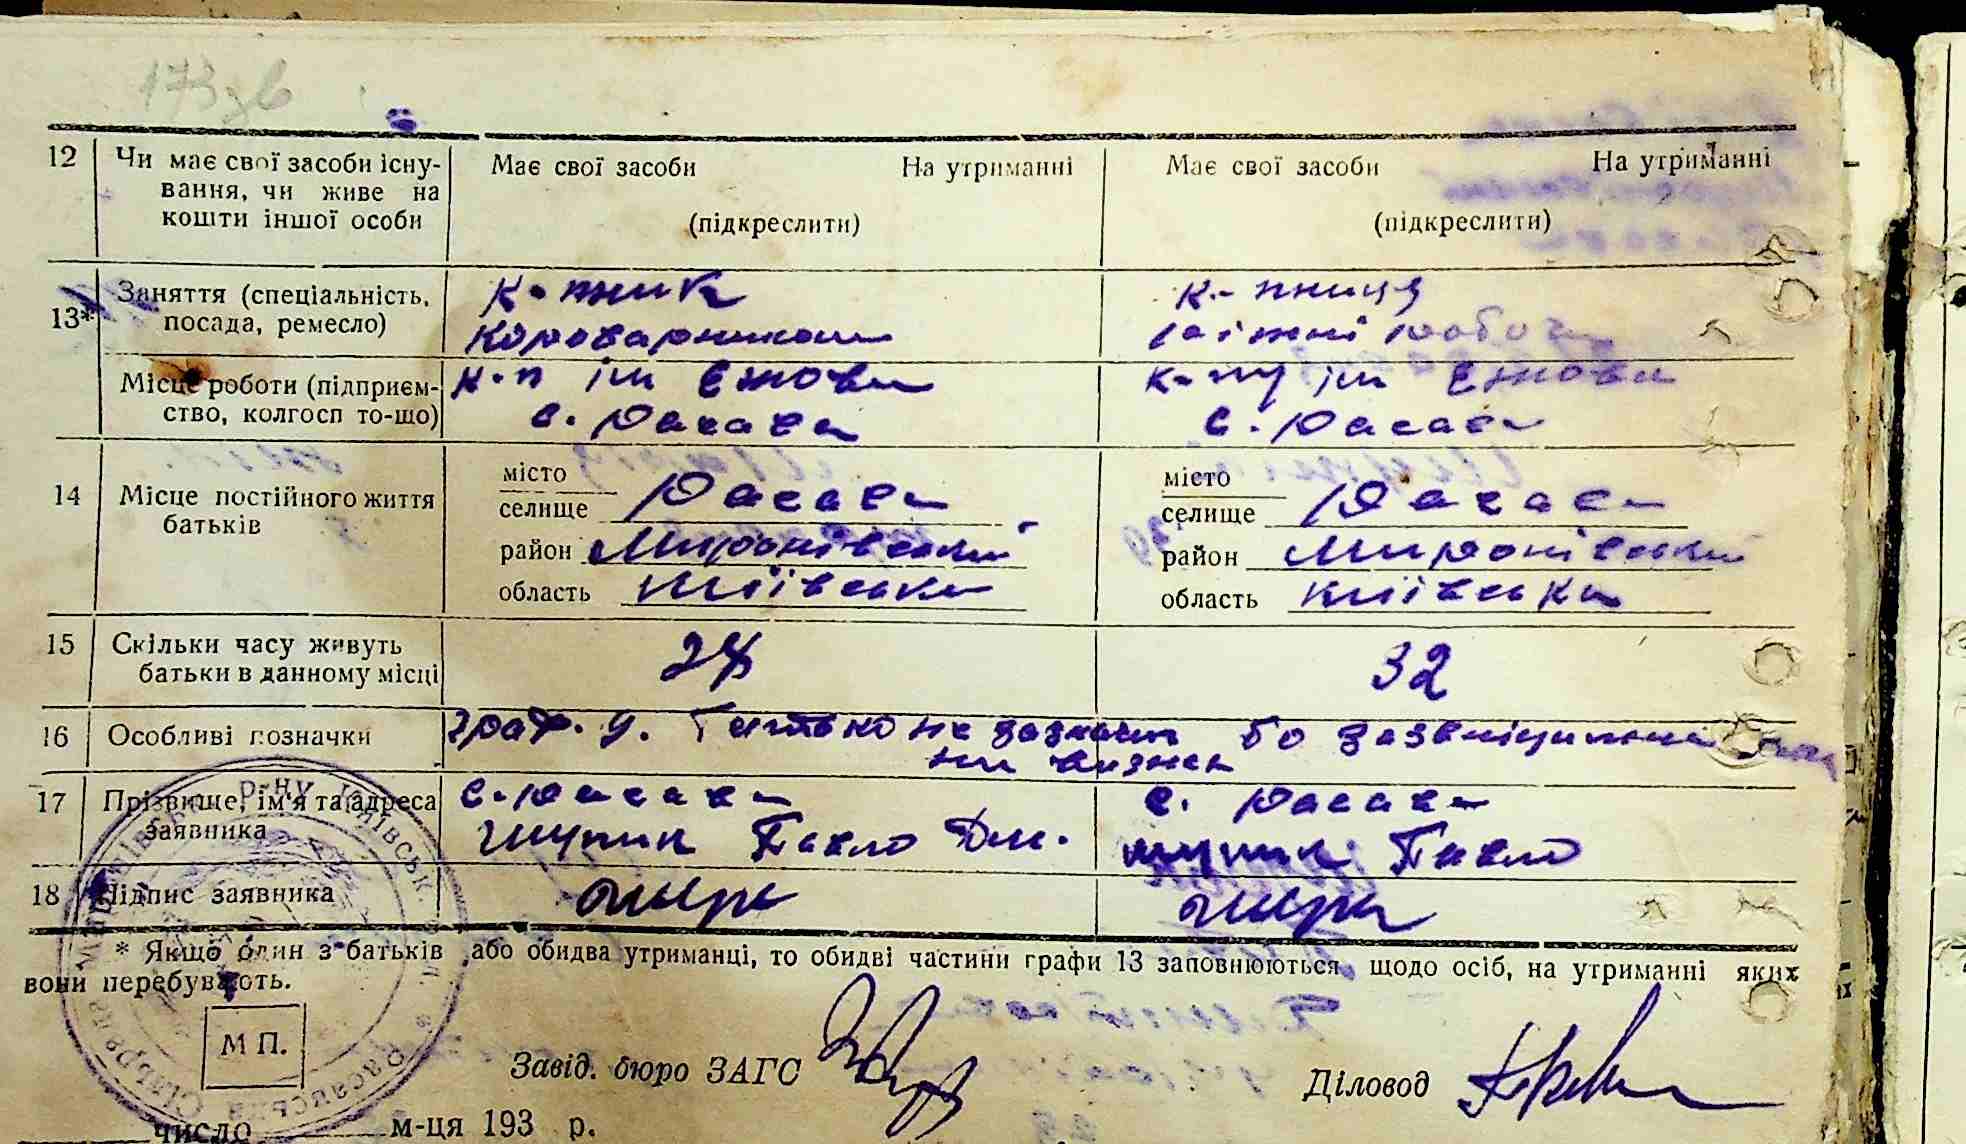 173 зв
12 Чи має свої засоби існу- Має свої засоби На утриманні Має свої засоби На утриманні
вання, чи живе на
кошти іншої особи (підкреслити) (підкреслити)
13* Заняття (спеціальність, к-пник к-пниця
посада, ремесло) роботи
Місце роботи (підприєм- к-п ім Єжова к-пу ім Єжова
ство, колгосп то-що) с. Расава с. Расава
14 Місце постійного життя місто місто
батьків селище Расава селище Расава
район Миронівський район Миронівський
область Київська область Київська
15 Скільки часу живуть 32
батьки в данному місці
16 Особливі позначки граф. 9. не зазнач бо
17 Прізвище, ім'я та адреса с. Расава с. Расава
заявника Павло Дм. Павло
18 Підпис заявника
* Якщо один з батьків або обидва утриманці, то обидві частини графи 13 заповнюються щодо осіб, на утриманні яких
вони перебувають.
М П.
Завід. бюро ЗАГС Діловод
число м-ця 193 р.